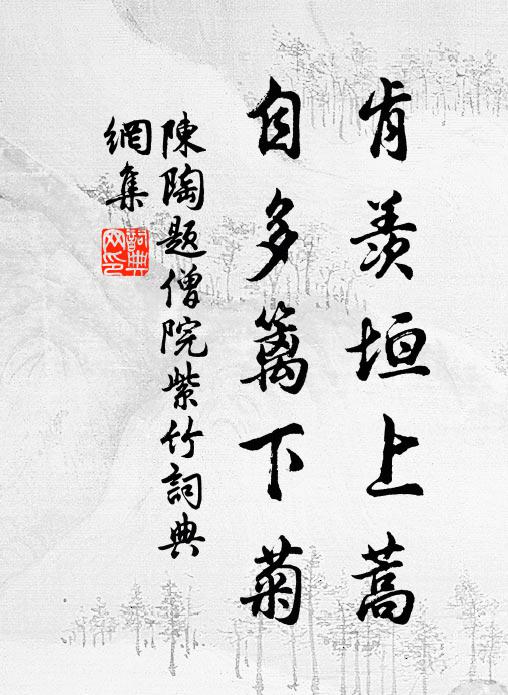 肯羨垣上蒿
自多篱下菊
陳陶題僧院紫竹詞典
網集
詞典網印